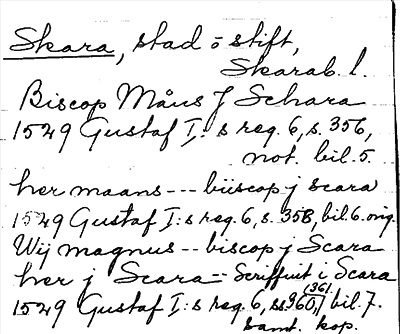 Skara, stad o stift,
Skarab. l.
Biscop Måns J Schara
1529 Gustaf I:s reg. 6, s. 356,
not. bil. 5.
her maans --- biiscop j scara
1529 Gustaf I:s reg. 6, s. 358, bil. 6. orig.
Wij magnus -- biscop j Scara
her j Scara -- Scriffuit i Scara
1529 Gustaf I:s reg. 6, ss. 360, (361) bil. 7.
samt. kop.